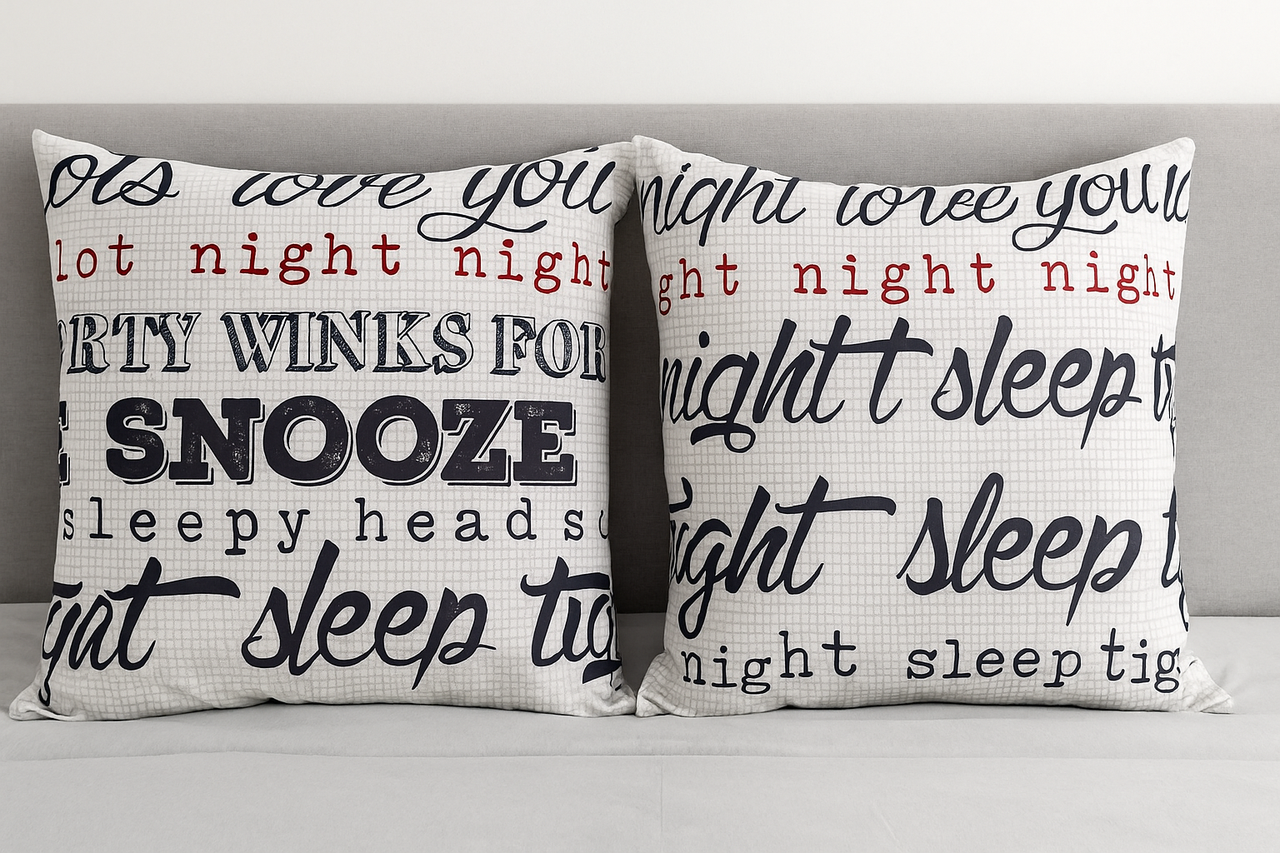 ols love you
lot night night
RTY WINKS FOR
E SNOOZE
sleepy heads
sleep tig
night love you
ght night night
night t sleep
ight sleep
night sleep tig